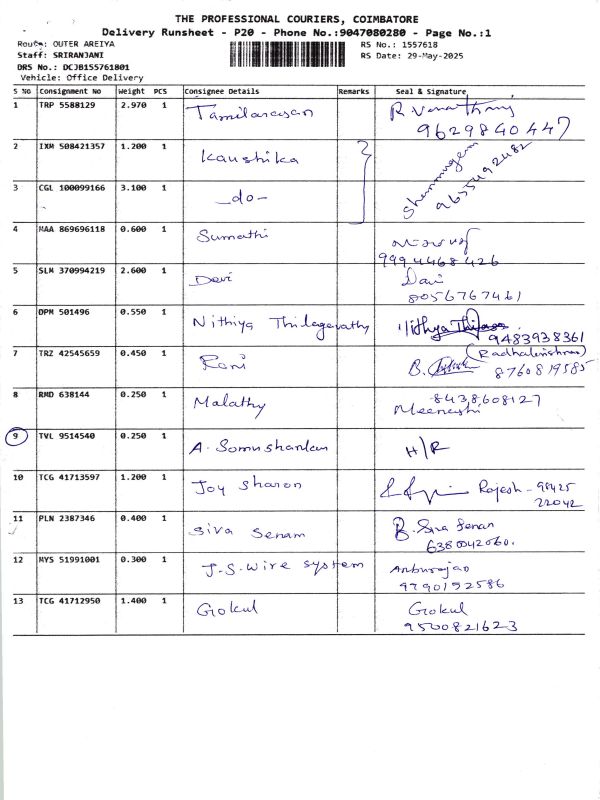 THE PROFESSIONAL COURIERS, COIMBATORE
Delivery Runsheet - P20 - Phone No.:9047080280 - Page No.:1
Route: OUTER AREIYA
RS No.: 1557618
Staff: SRIRANJANI
RS Date: 29-May-2025
DRS No.: DCJB155761801
Vehicle: Office Delivery
S NO Consignment No Weight PCS Consignee Details Remarks Seal & Signature
1 TRP 5588129 2.970 1 Tamilarasan
9629840447
2 IXM 508421357 1.200 1 Kaushika
Shanmugam
9655492482
3 CGL 100099166 3.100 1 -do-
4 MAA 869696118 0.600 1 Sumathi
9994468426
5 SLM 370994219 2.600 1 Devi Davi
8056767461
6 DPM 501496 0.550 1 Nithiya Thilagavathy
9483938361
7 TRZ 42545659 0.450 1 Rani B. (Radhakrishnan)
8760819585
8 RMD 638144 0.250 1 Malathy 8438608127
Meenashi
9 TVL 9514540 0.250 1 A. Somushankan H/R
10 TCG 41713597 1.200 1 Joy Sharon Rajesh - 98425
22042
11 PLN 2387346 0.400 1 Siva Senam B. Siva Senan
6380042060.
12 MYS 51991001 0.300 1 J.S. Wire System Anburajan
9790152586
13 TCG 41712950 1.400 1 Gokul Gokul
9500821623